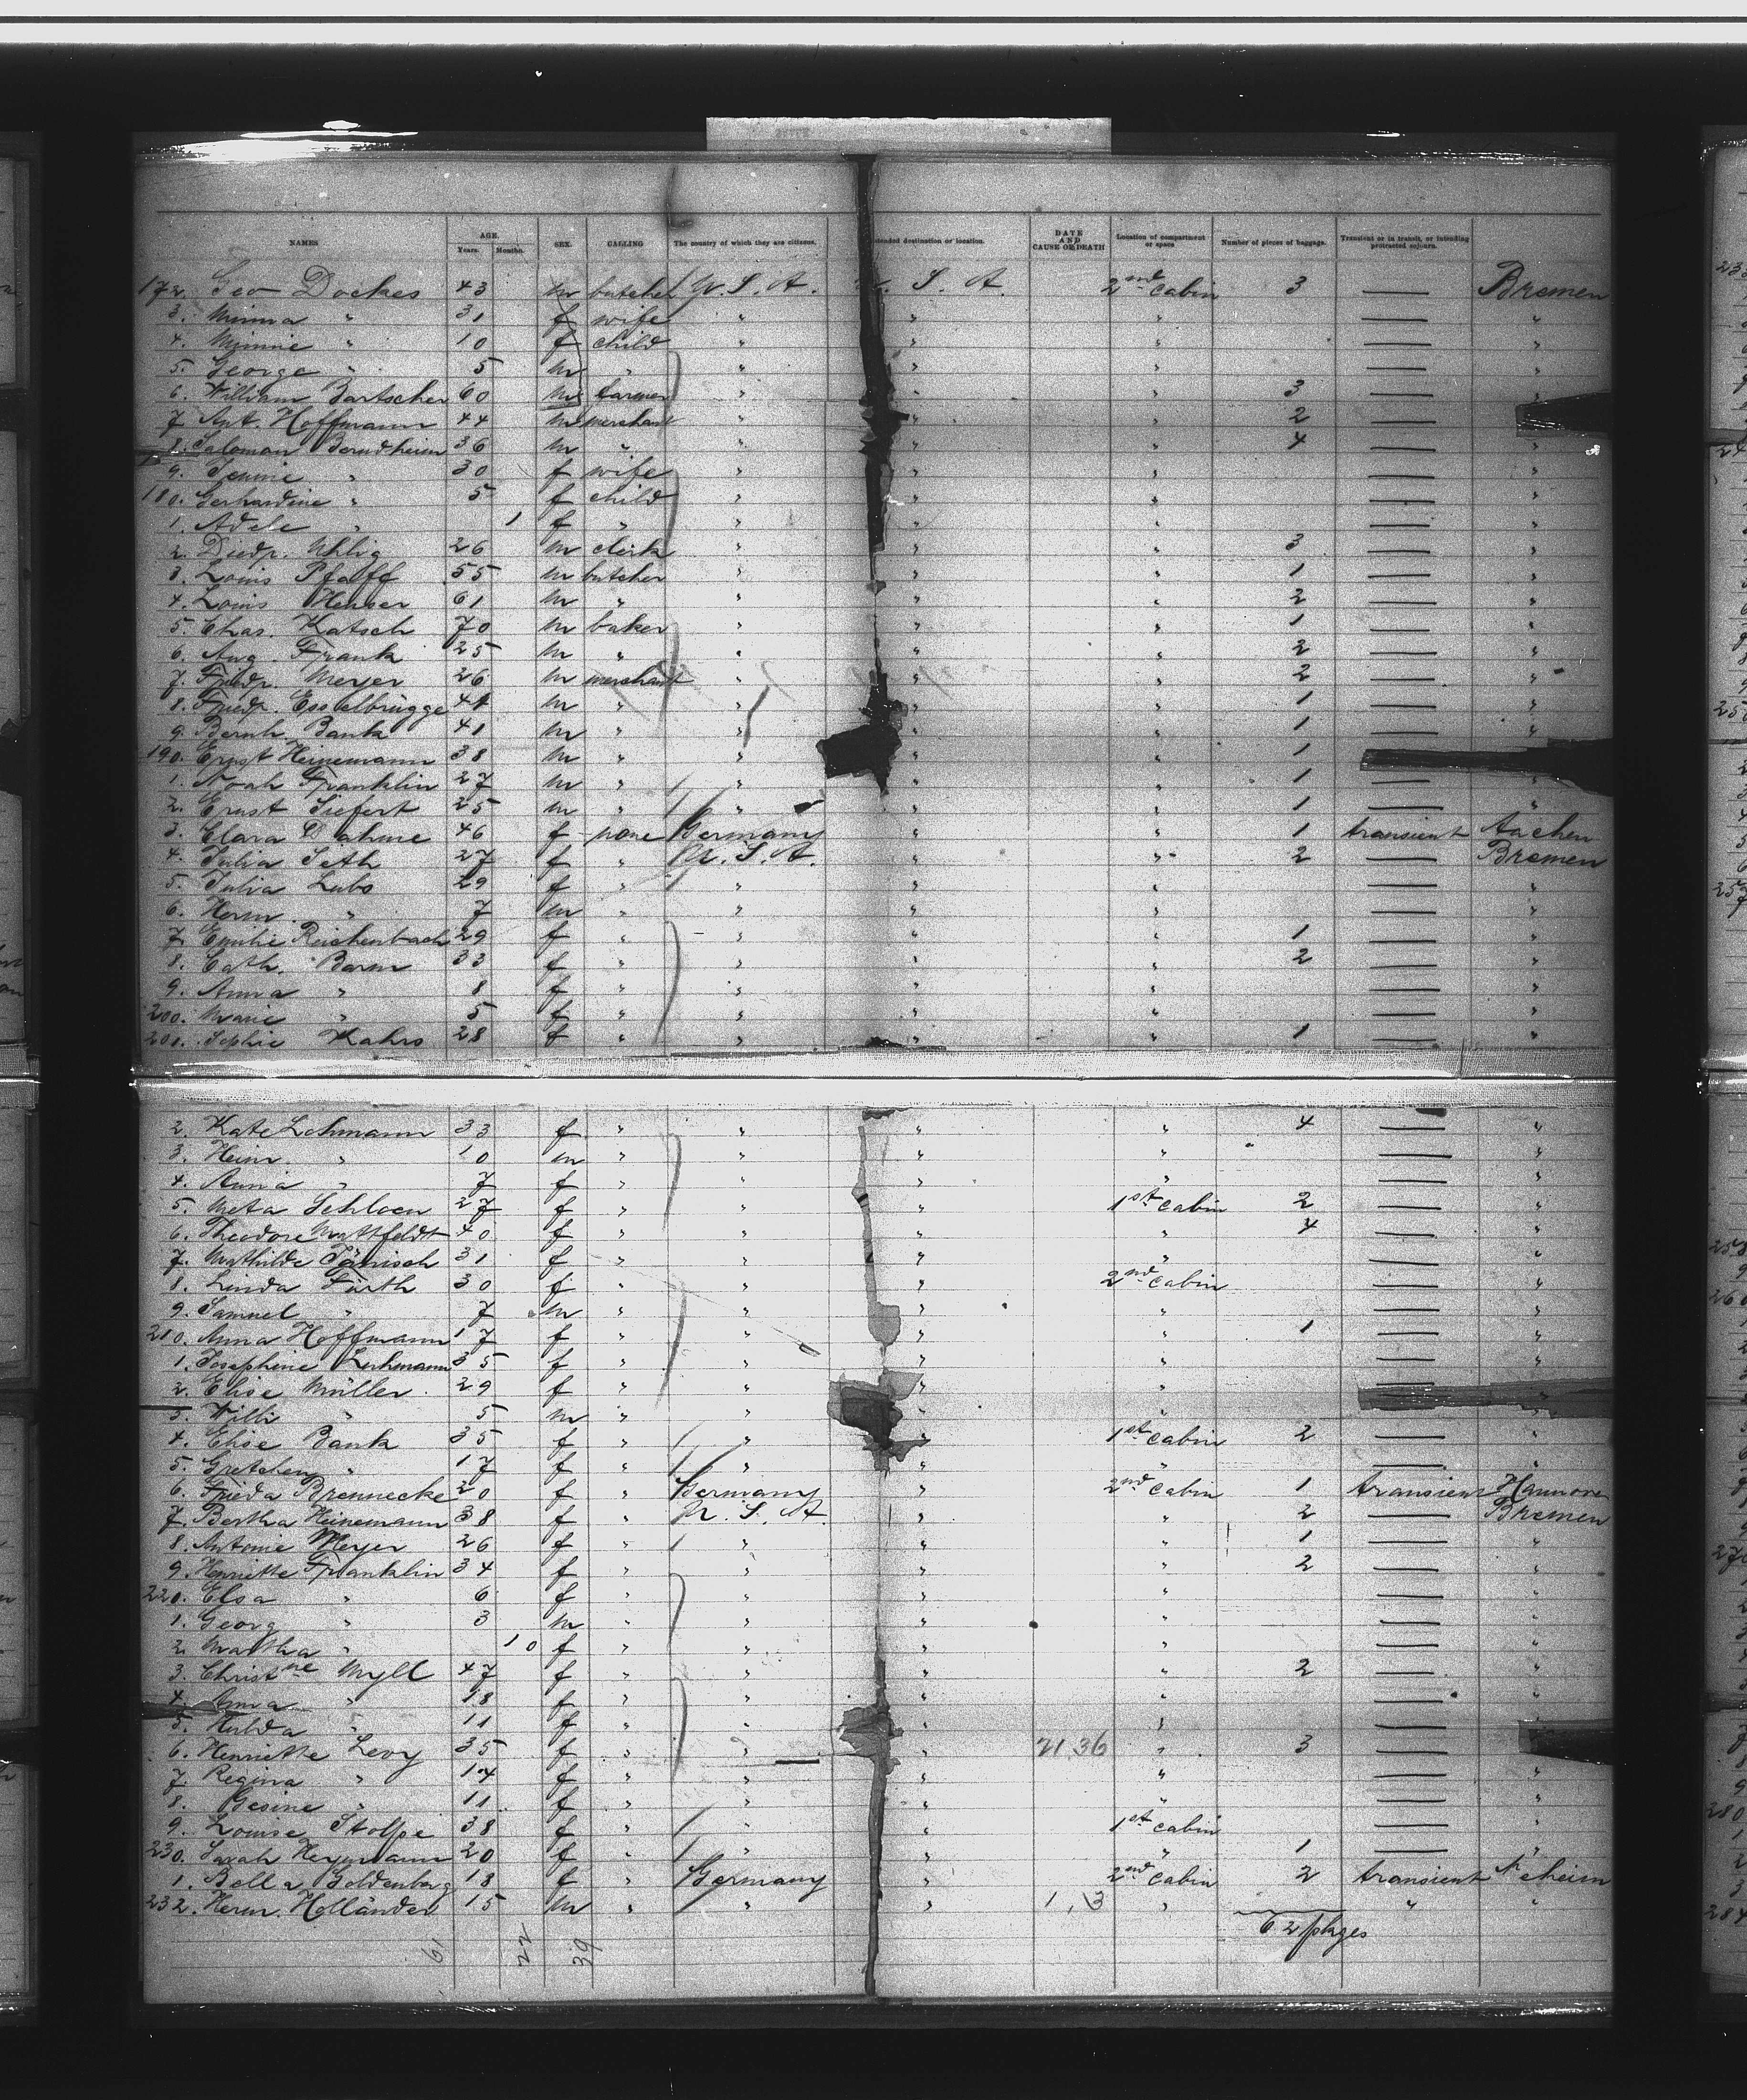 NAMES AGE. SEX. CALLING The country of which they are citizens. Intended destination or location. DATE AND CAUSE OF DEATH Location of compartment or space Number of pieces of baggage. Transient or in transit, or intending protracted sojourn.
Years. Months.
172. Geo Dockes 43 m butcher U. S. A. U. S. A. 2nd cabin 3 — Bremen
3. Minna " 31 f wife " " " — "
4. Minnie " 10 f child " " " — "
5. George " 5 m " " " " — "
6. William Bartscher 60 m farmer " " " 3 — "
7. Ant. Hoffmann 44 m merchant " " " 2 — "
8. Saloman Berndheim 36 m " " " " 4 — "
9. Jennie " 30 f wife " " " — "
180. Gerhardine " 5 f child " " " — "
1. Adele " 1 f " " " " — "
2. Diedr. Uhlig 26 m clerk " " " 3 — "
3. Louis Pfaff 55 m butcher " " " 1 — "
4. Louis Heuser 61 m " " " " 2 — "
5. Chas. Katsch 70 m baker " " " 1 — "
6. Aug. Frank 25 m " " " " 2 — "
7. Friedr. Meyer 26 m merchant " " " 2 — "
8. Friedr. Esselbrügge 44 m " " " " 1 — "
9. Bernh. Bank 41 m " " " " 1 — "
190. Ernst Heinemann 38 m " " " " 1 — "
1. Noah Franklin 27 m " " " " 1 — "
2. Ernst Siefert 25 m " " " " 1 — "
3. Clara Dahme 46 f none Germany " " 1 transient Aachen
4. Julia Seth 27 f " U. S. A. " " 2 — Bremen
5. Julia Lubs 29 f " " " " — "
6. Herm. " 7 m " " " " — "
7. Emilie Reichenbach 29 f " " " " 1 — "
8. Cath. Barm 33 f " " " " 2 — "
9. Anna " 8 f " " " " — "
200. Marie " 5 f " " " " — "
201. Sophie Kahrs 28 f " " " " 1 — "
2. Kate Lohmann 33 f " " " " 4 — "
3. Heinr. " 10 m " " " " — "
4. Anna " 7 f " " " " — "
5. Meta Schloen 27 f " " " 1st cabin 2 — "
6. Theodore Mattfeldt 40 f " " " " 4 — "
7. Mathilde Jänisch 31 f " " " " — "
8. Linda Fürth 30 f " " " 2nd cabin — "
9. Samuel " 7 m " " " " — "
210. Anna Hoffmann 17 f " " " " 1 — "
1. Josephine Luhmann 35 f " " " " — "
2. Elise Müller 29 f " " " " — "
3. Willi " 5 m " " " " — "
4. Elise Bank 35 f " " " 1st cabin 2 — "
5. Gretchen " 17 f " " " " — "
6. Frieda Brennecke 20 f " Germany " 2nd cabin 1 transient Hannover
7. Bertha Heinemann 38 f " U. S. A. " " 2 — Bremen
8. Antonie Meyer 26 f " " " " 1 — "
9. Henriette Franklin 34 f " " " " 2 — "
220. Elsa " 6 f " " " " — "
1. Georg " 3 m " " " " — "
2. Martha " 10 f " " " " — "
3. Christine Myll 47 f " " " " 2 — "
4. Anna " 18 f " " " " — "
5. Hulda " 11 f " " " " — "
6. Henriette Levy 35 f " " " 21 36 " 3 — "
7. Regina " 14 f " " " " — "
8. Gesine " 11 f " " " " — "
9. Louise Stolpe 38 f " " " 1st cabin — "
230. Sarah Heymann 20 f " " " " 1 — "
1. Bella Goldenberg 18 f " Germany " 2nd cabin 2 transient Neheim
232. Herm. Holländer 15 m " " " 1, 3 " " "
62 pkges
61 22 39